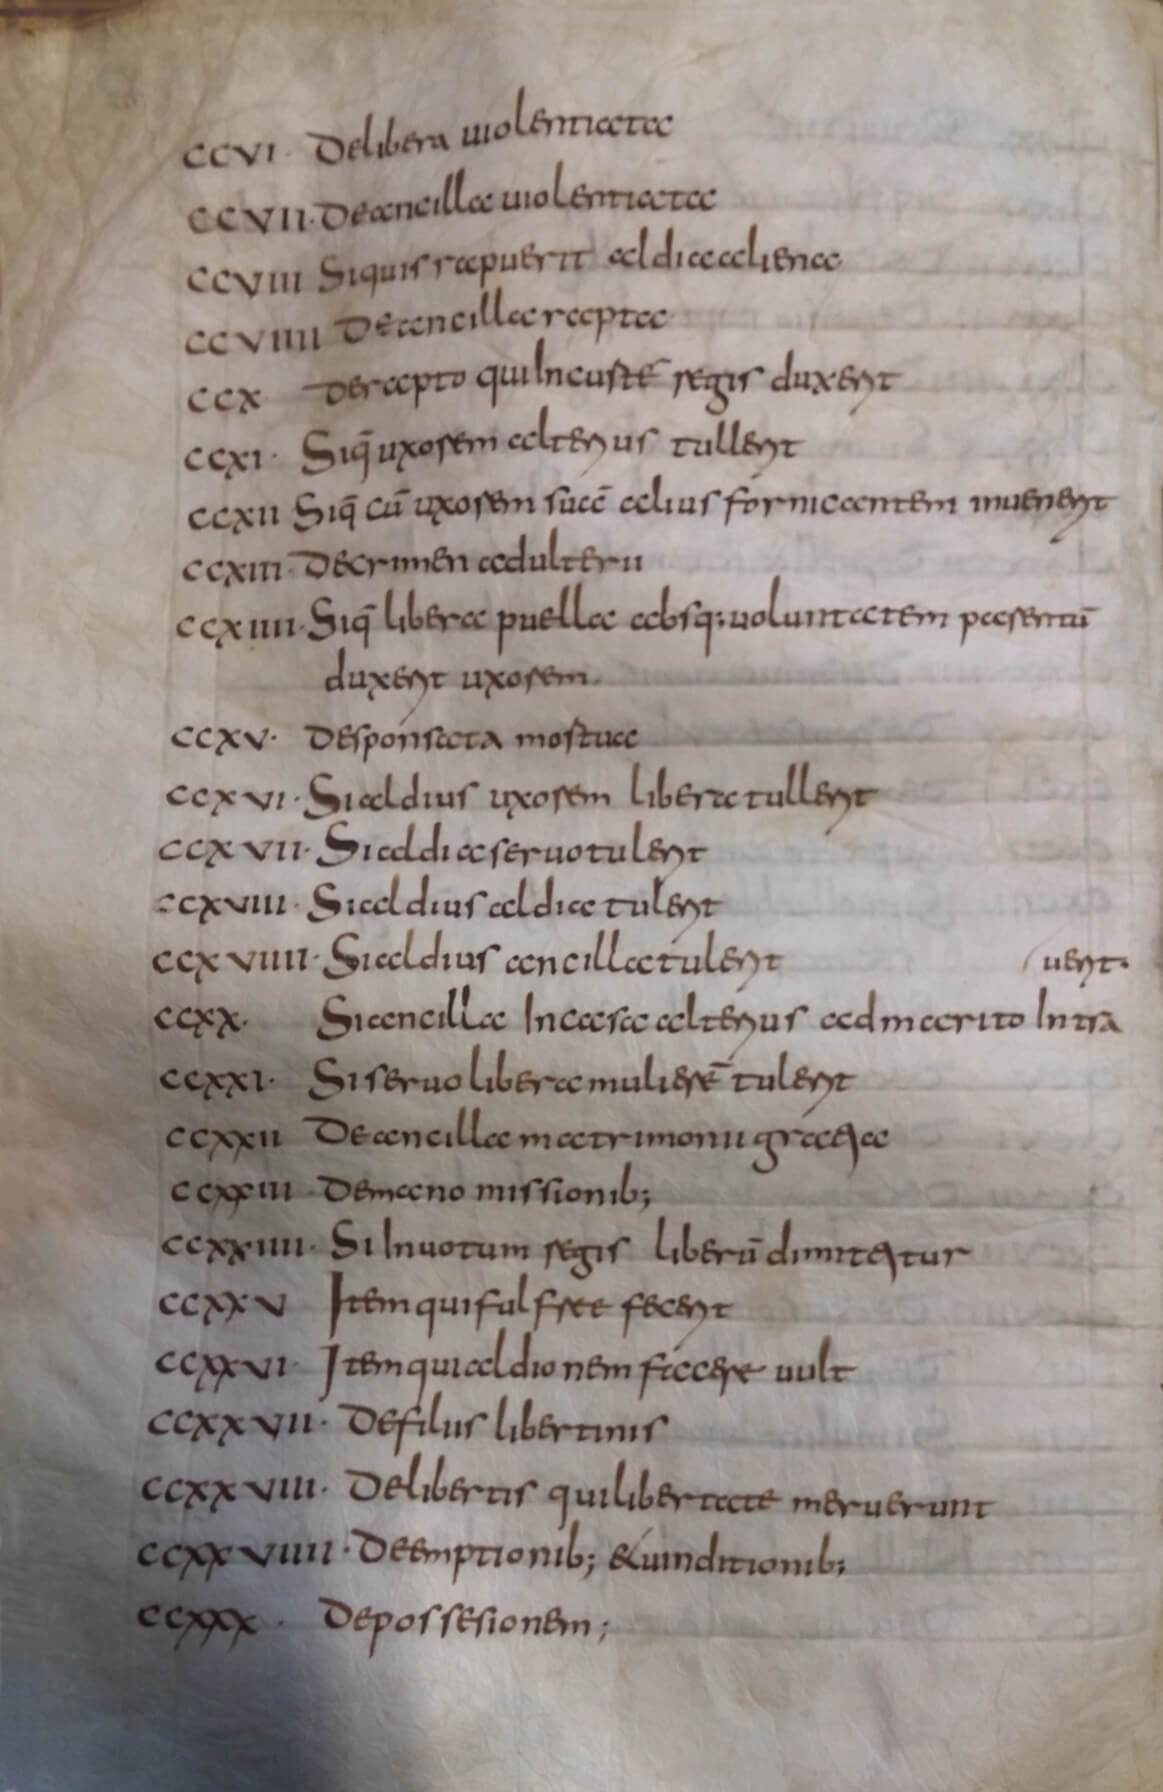 CCVI · De libera uiolentiata
CCVII · De ancilla uiolentiata
CCVIII Si quis rapuerit aldia aliena
CCVIIII De ancilla rapta
CCX De rapto qui in curte regis duxerit
CCXI · Si q̄ uxorem alterius tullerit
CCXII Si q̄ cū uxorem suā alius fornicantem inuenerit
CCXIII · De crimen adulterii
CCXIIII · Si q̄ libera puella absq; uoluntatem parentū
duxerit uxorem
CCXV · De sponsata mortua
CCXVI · Si aldius uxorem libera tullerit
CCXVII · Si aldia seruo tulerit
CCXVIII · Si aldius aldia tulerit
CCXVIIII · Si aldius ancilla tulerit
uerit ·
CCXX · Si ancilla in casa alterius ad marito intra
CCXXI · Si seruo libera mulierē tulerit
CCXXII De ancilla matrimonii gratia
CCXXIII De manomissionib;
CCXXIIII · Si in uotum regis liberū dimittetur
CCXXV Item qui fulfree fecerit
CCXXVI · Item qui aldionem facere uult
CCXXVII · De filiis libertinis
CCXXVIII · De libertis qui libertate meruerunt
CCXXVIIII · De emptionib; & uinditionib;
CCXXX · De possesionem ;